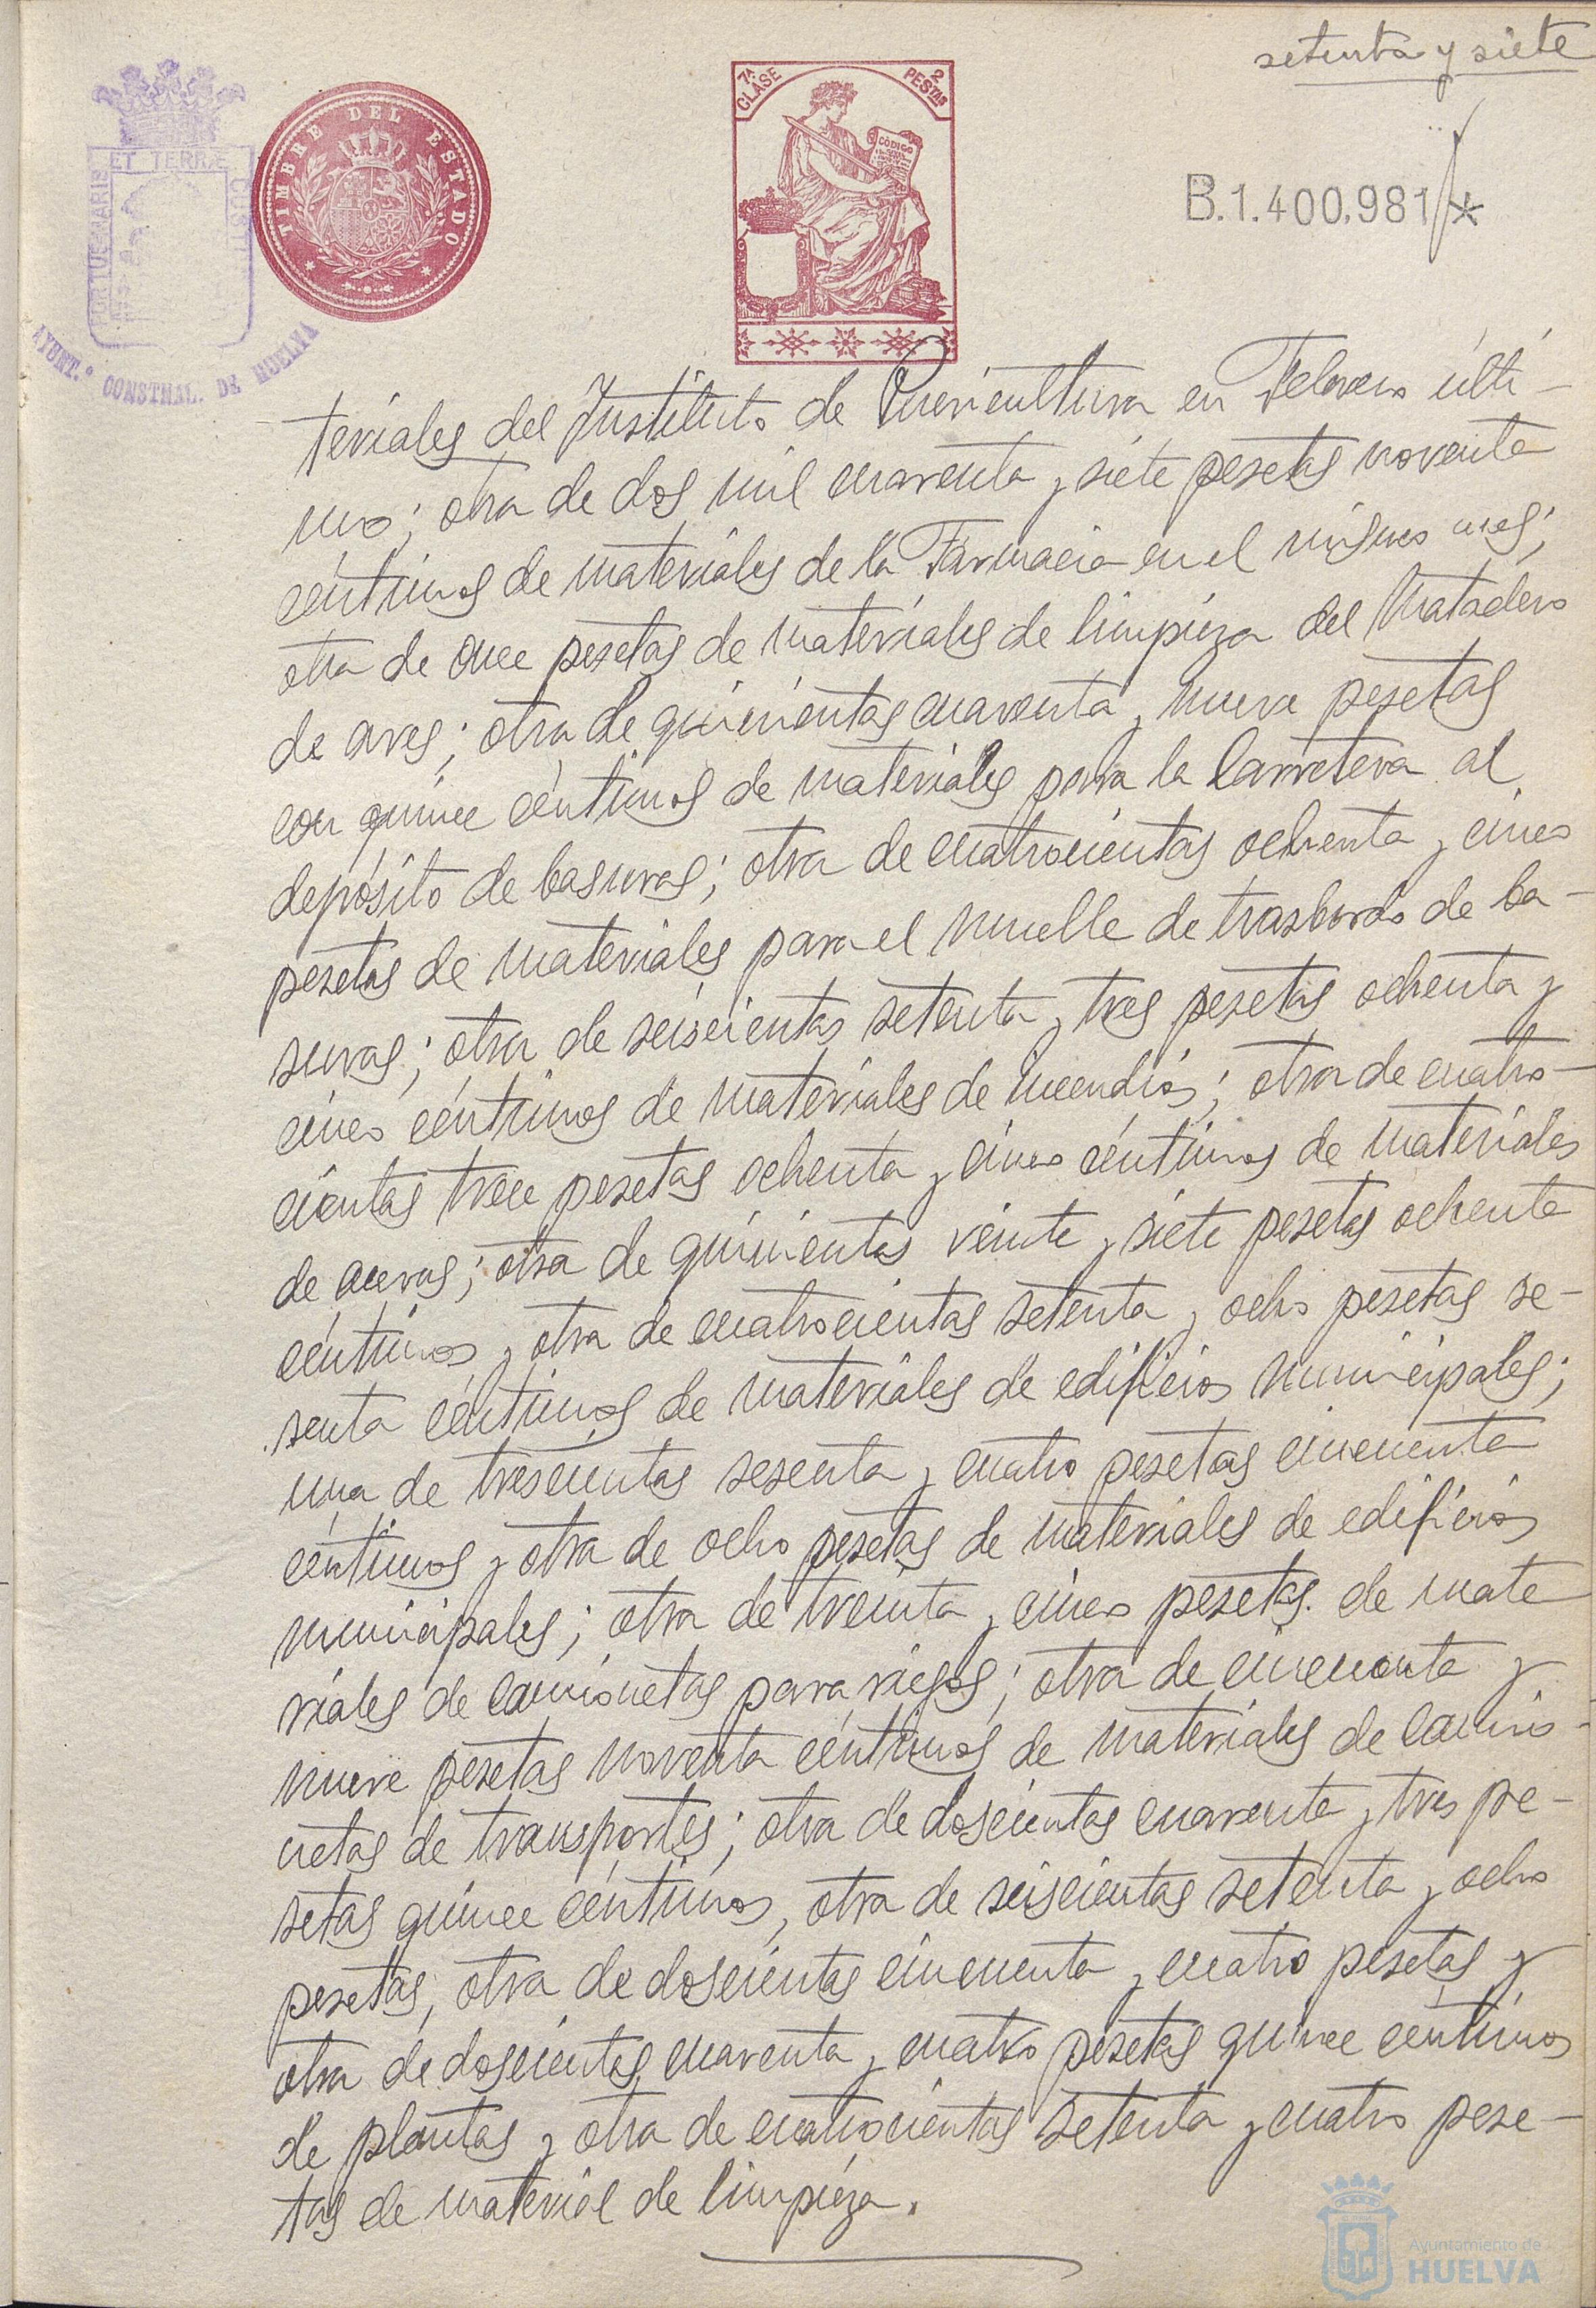 setenta y siete
7ª CLASE
2 PESTAS
CÓDIGO
TIMBRE DEL ESTADO
PORTUS MARIS ET TERRÆ CUSTO
AYUNT.º CONSTNAL. DE HUELVA
B.1.400.981 *
teriales del Instituto de Puericultura en Febrero últi-
mo; otra de dos mil cuarenta y siete pesetas noventa
céntimos de materiales de la Farmacia en el mismo mes;
otra de once pesetas de materiales de limpieza del Matadero
de aves; otra de quinientas cuarenta y nueve pesetas
con quince céntimos de materiales para la Carretera al
depósito de basuras; otra de cuatrocientas ochenta y cinco
pesetas de materiales para el muelle de trasbordo de ba-
suras; otra de seiscientas setenta y tres pesetas ochenta y
cinco céntimos de materiales de incendios; otra de cuatro-
cientas trece pesetas ochenta y cinco céntimos de materiales
de aceras; otra de quinientas veinte y siete pesetas ochenta
céntimos y otra de cuatrocientas setenta y ocho pesetas se-
senta céntimos de materiales de edificios municipales;
una de trescientas sesenta y cuatro pesetas cincuenta
céntimos y otra de ocho pesetas de materiales de edificios
municipales; otra de treinta y cinco pesetas de mate
riales de camionetas para riegos; otra de cincuenta y
nueve pesetas noventa céntimos de materiales de camio-
netas de transportes; otra de doscientas cuarenta y tres pe-
setas quince céntimos, otra de seiscientas setenta y ocho
pesetas, otra de doscientas cincuenta y cuatro pesetas y
otra de doscientas cuarenta y cuatro pesetas quince céntimos
de plantas y otra de cuatrocientas setenta y cuatro pese-
tas de material de limpieza.
Ayuntamiento de
HUELVA